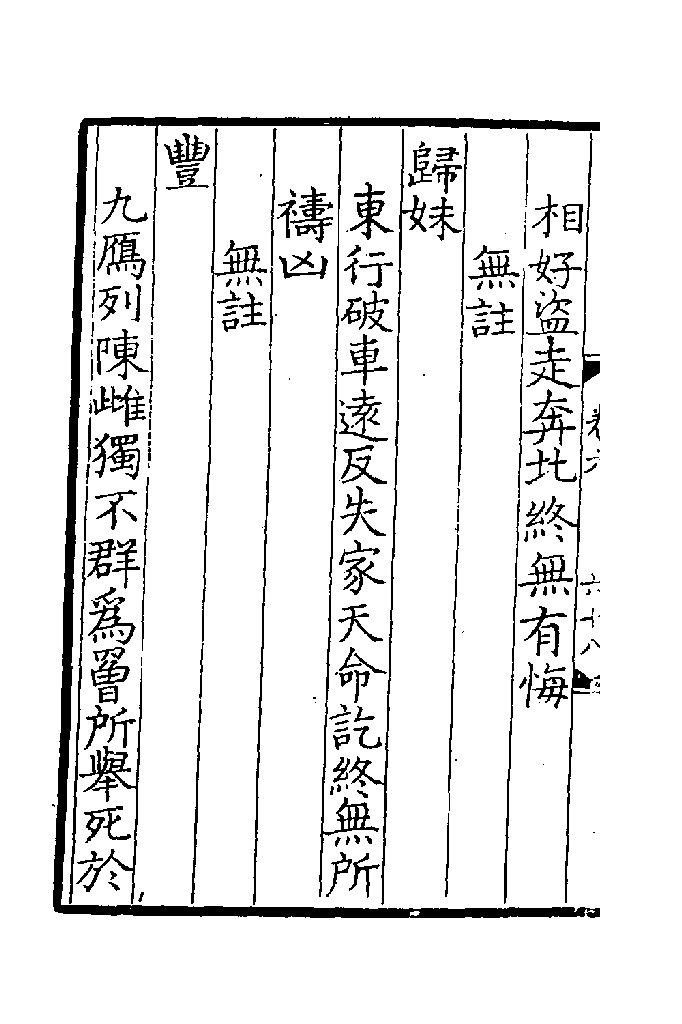 相好盜走奔北終無有悔
無註
歸妹
東行破車遠反失家天命訖終無所
禱凶
無註
豐
九鴈列陳雌獨不群為罾所舉死於